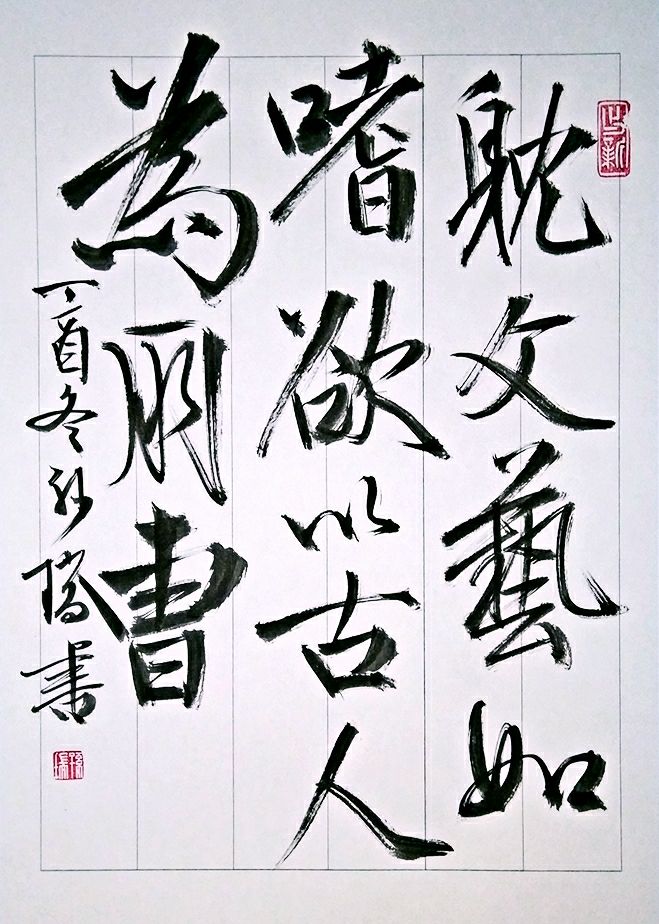 躭文藝如
嗜欲以古人
為朋曹
丁酉冬孙書